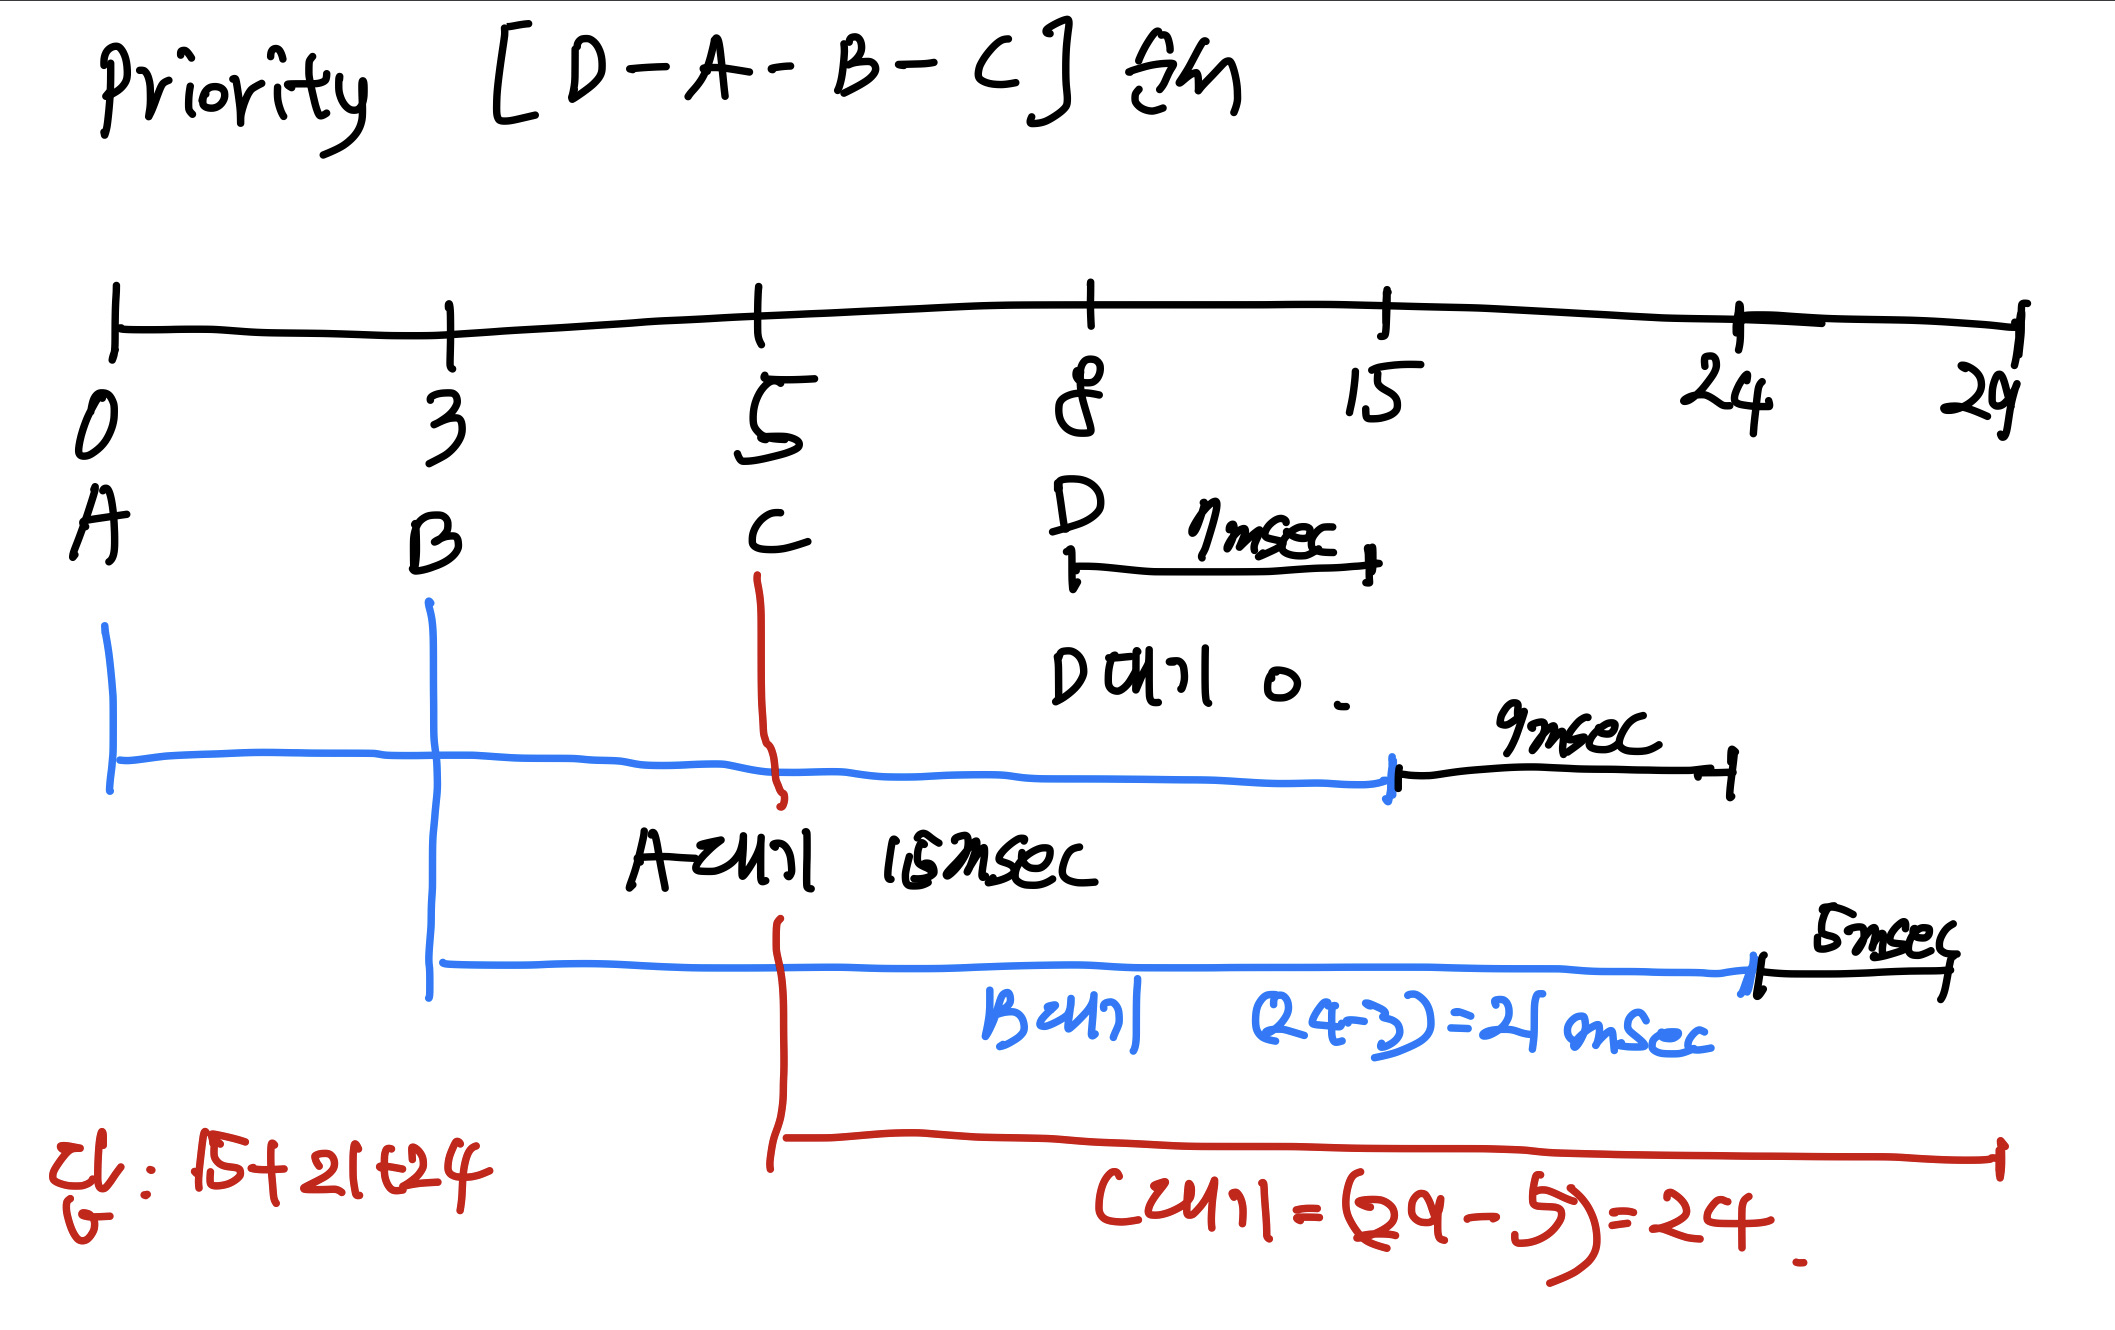 Priority [D-A-B-C] 순서
0 3 5 8 15 24 29
A B C D
7msec
D 대기 0.
9msec
A 대기 15msec
5msec
B 대기 (24-3)=21 msec
답: 15+21+24
C 대기=(29-5)=24.